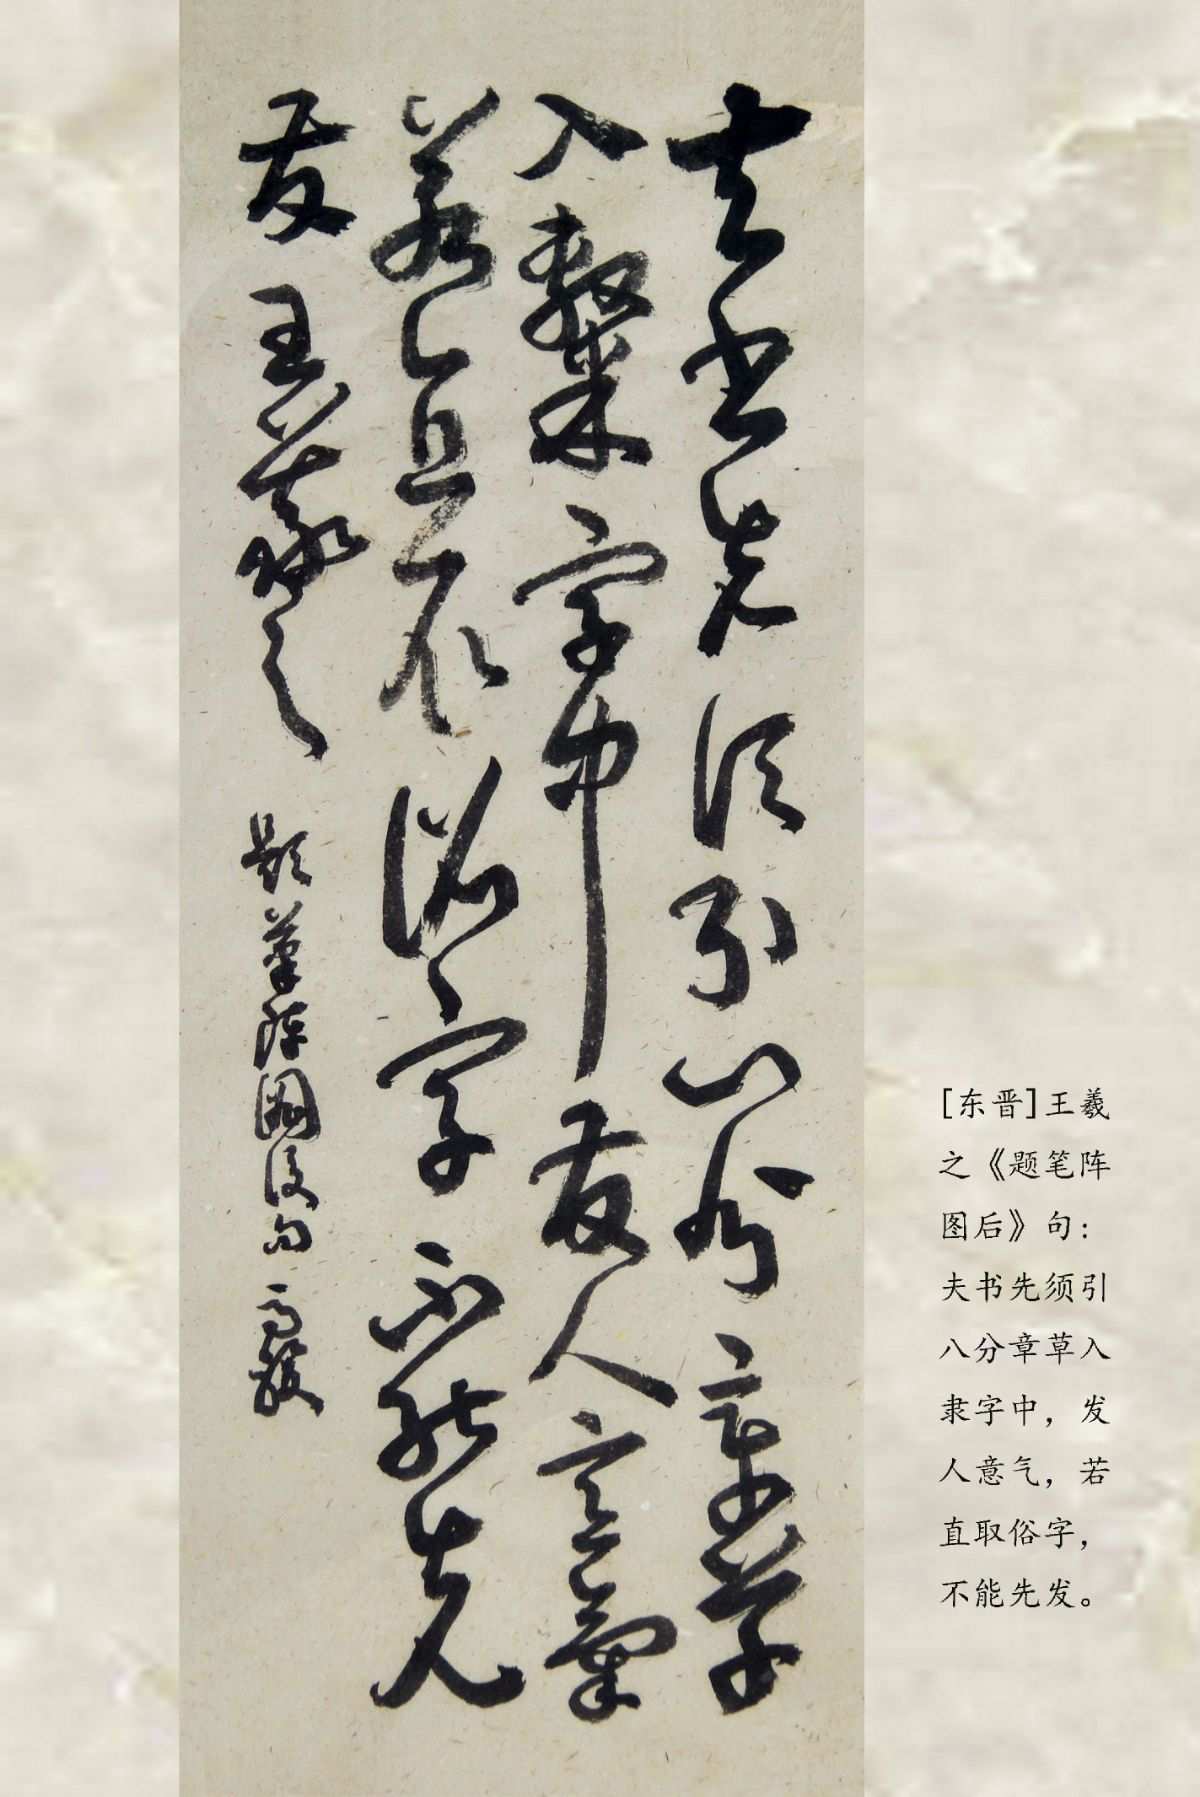 夫书先须引八分章草
入隶字中发人意气
若直取俗字不能先
发王羲之题笔阵图后句
[东晋]王羲
之《题笔阵
图后》句：
夫书先须引
八分章草入
隶字中，发
人意气，若
直取俗字，
不能先发。